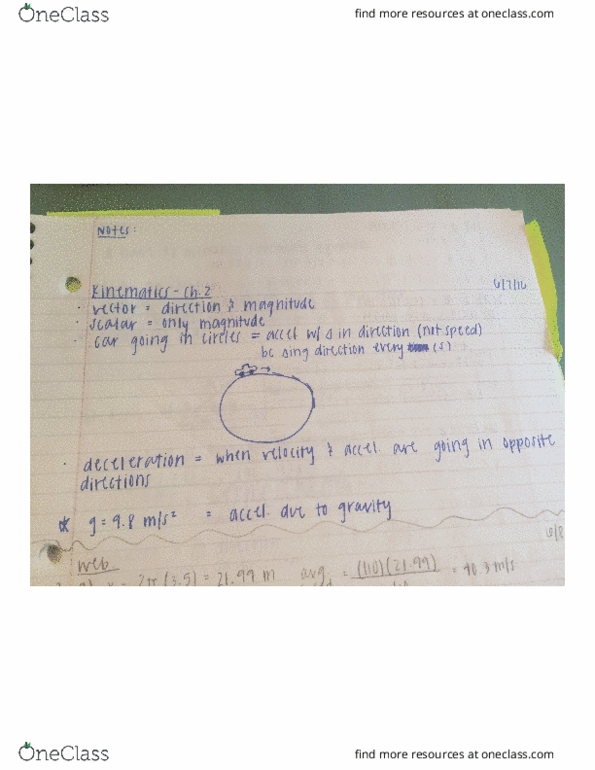 OneClass
find more resources at oneclass.com
Notes:
Kinematics - ch. 2
6/7/16
· vector = direction & magnitude
· scalar = only magnitude
· car going in circles = accel w/ Δ in direction (not speed)
bc Δing direction every (s)
· deceleration = when velocity & accel. are going in opposite
directions
* g = 9.8 m/s² = accel. due to gravity
6/8
web
2π(3.5) = 21.99 m avg = (110)(21.99) = 40.3 m/s
OneClass
find more resources at oneclass.com